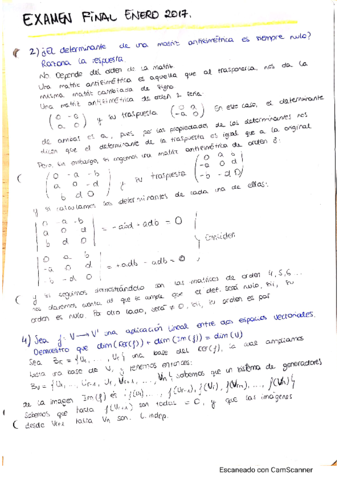 EXAMEN FINAL ENERO 2017.
2) ¿El determinante de una matriz antisimétrica es siempre nulo?
Razona la respuesta.
No. Depende del orden de la matriz
Una matriz antisimétrica es aquella que al trasponerla, nos da la
misma matriz cambiada de signo
Una matriz antisimétrica de orden 2 sería
(0 -a; a 0) y su traspuesta (0 a; -a 0) En ese caso, el determinante
de ambas es a, pues por las propiedades de los determinantes nos
dicen que el determinante de la traspuesta es igual que a la original
Pero, sin embargo, si cogemos una matriz antisimétrica de orden 3:
(0 -a -b; a 0 -d; b d 0) y su traspuesta (0 a b; -a 0 d; -b -d 0)
y si calculamos los determinantes de cada una de ellas:
|0 -a -b; a 0 d; b d 0| = -abd + adb = 0
Coinciden
|0 a b; -a 0 d; -b -d 0| = -adb - adb = 0
y si seguimos demostrándolo con las matrices de orden 4, 5, 6...
nos daremos cuenta de que se cumple que el det. será nulo, si su
orden es nulo. Por otro lado, será ≠ 0, si su orden es par
4) Sea f: V → V' una aplicación lineal entre dos espacios vectoriales.
Demuestra que dim(Ker(f)) + dim(Im(f)) = dim(V)
Sea B = {U1, ..., Ur} una base del Ker(f), la cual ampliamos
hasta una base de V, y tenemos entonces:
Bv = {U1, ..., Ur, Ur+1, ..., Un} sabemos que un sistema de generadores
de la imagen Im(f) es {f(U1), ..., f(Ur), f(Ur+1), ..., f(Un)}
Sabemos que hasta f(Ur) son todos = 0, y que las imágenes
desde Ur+1 hasta Un son l. indep.
Escaneado con CamScanner